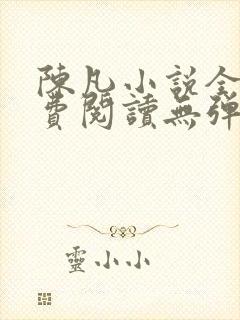 陳凡小説全
費閱讀無彈
靈小小